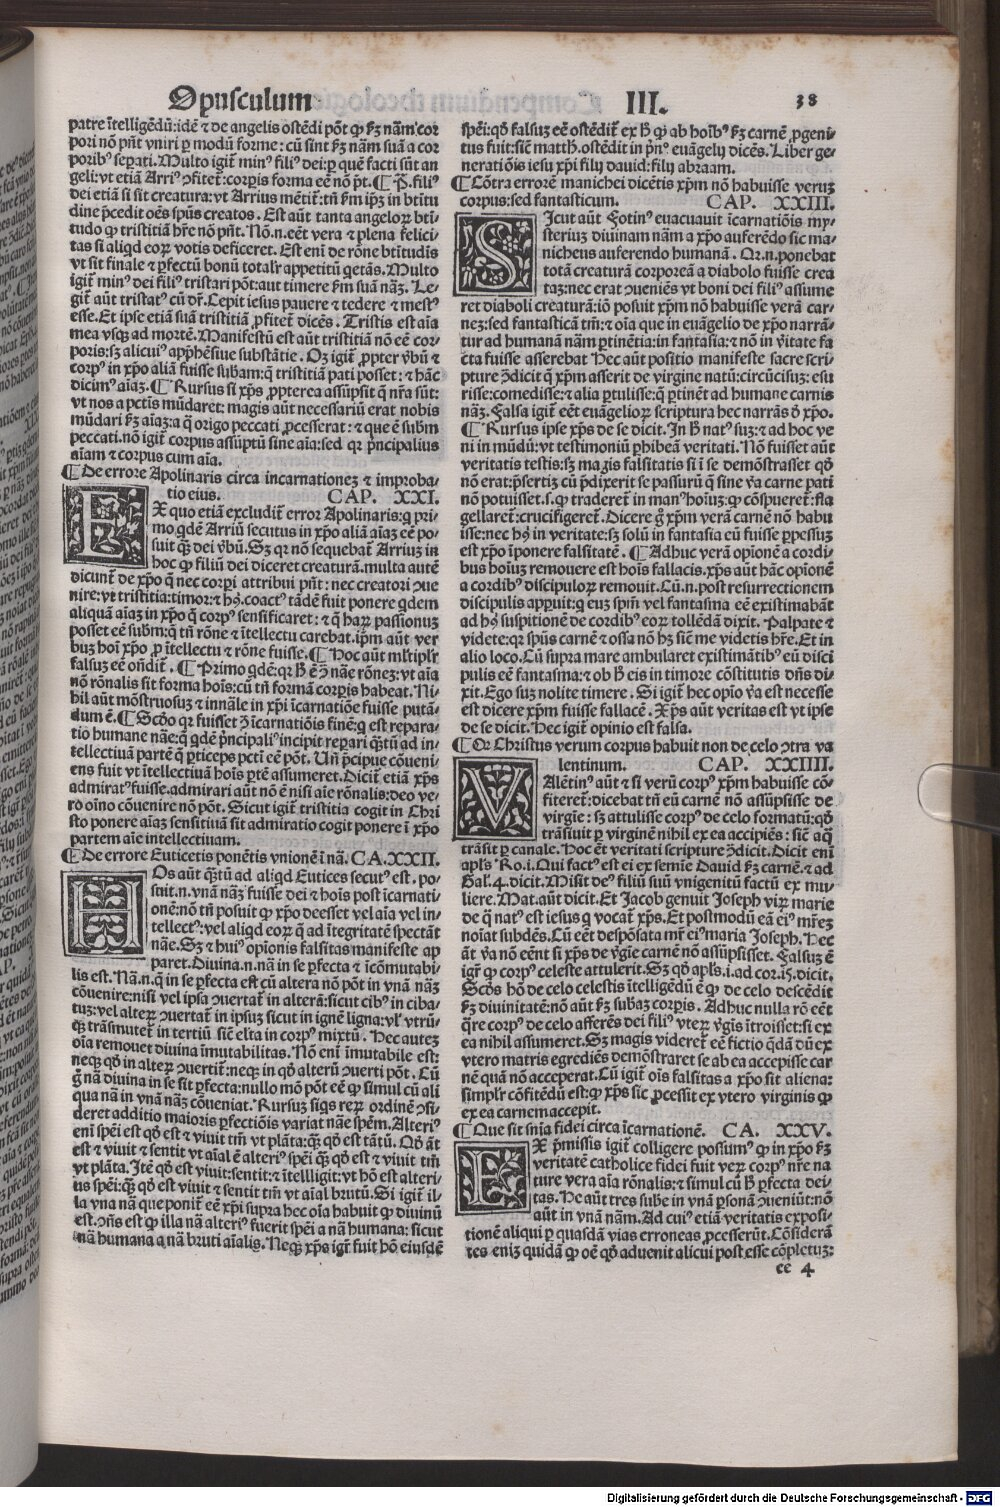 Opusculum III. 38
patre ītelligēdū: idē ⁊ de angelis ostēdi pōt ꝙ ẜm nām̄ cor
pori nō pn̄t vniri ꝑ modū forme: cū sint ẜm nām suā a cor
poribꝰ sepati. Multo igit̄ minꝰ filiꝰ dei: ꝑ quē facti sūt an
geli: vt etiā Arriꝰ ꝯfitet̄: corpis forma eē nō pt̄. ¶ P̄. filiꝰ
dei etiā si sit creatura: vt Arrius mētit̄: tn̄ ẜm ip̄m in btītu
dine p̄cedit oēs spūs creatos. Est aūt tanta angeloꝝ btī-
tudo ꝙ tristitiā hr̄e nō pn̄t. Nō .n. eēt vera ⁊ plena felici-
tas si aliqd eoꝝ votis deficeret. Est eni de rōne btītudis
vt sit finale ⁊ ꝑfectū bonū totalr̄ appetitū q̄etās. Multo
igit̄ minꝰ dei filiꝰ tristari pōt: aut timere ẜm suā nāꝫ. Le-
git̄ aūt tristatꝰ cū dr̄. Cepit iesus pauere ⁊ tedere ⁊ mestꝰ
esse. Et ipse etiā suā tristitiā ꝓfitet̄ dicēs. Tristis est aīa
mea vsqꝫ ad mortē. Manifestū est aūt tristitiā nō eē cor-
poris: sꝫ alicuiꝰ app̄hēsiue substātie. Oꝫ igit̄ ꝓpter v̄bū ⁊
corpꝰ in xp̄o aliā fuisse subam: q̄ tristitiā pati posset: ⁊ hāc
dicimꝰ aīaꝫ. ¶ Rursus si xp̄s ꝓpterea assūpsit q̄ nr̄a sūt:
vt nos a pctīs mūdaret: magis aūt necessariū erat nobis
mūdari ẜm aīaꝫ: a q̄ origo peccati ꝓcesserat: ⁊ que ē subm
peccati. nō igit̄ corpus assūptū sine aīa: sed qꝛ p̄ncipalius
aīam ⁊ corpus cum aīa.
¶ De errore Apolinaris circa incarnationeꝫ ⁊ improba-
tio eius. CAP. XXI.
EX quo etiā excludit̄ error Apolinaris: q̄ pri-
mo qdē Arriū secutus in xp̄o aliā aīaꝫ eē po-
suit q̄ꝫ dei v̄bū. Sꝫ qꝛ nō sequebat̄ Arriuꝫ in
hoc ꝙ filiū dei diceret creaturā. multa autē
dicunt̄ de xp̄o q̄ nec corpi attribui pn̄t: nec creatori ꝯue
nire: vt tristitia: timor: ⁊ hꝰ. coactꝰ tādē fuit ponere qdem
aliquā aīaꝫ in xp̄o q̄ corpꝰ sensificaret: ⁊ q̄ haꝝ passionuꝫ
posset eē subm: q̄ tn̄ rōne ⁊ ītellectu carebat. ip̄m aūt ver
buꝫ hoī xp̄o ꝓ ītellectu ⁊ rōne fuisse. ¶ Hoc aūt ml̄tiplr̄
falsuꝫ eē on̄dit̄. ¶ Primo qdē: qꝛ ꝧ ē ꝯ nāe rōneꝫ: vt aīa
nō rōnalis sit forma hoīs: cū tn̄ formā corpis habeat. Ni-
hil aūt mōstruosuꝫ ⁊ innāle in xp̄i īcarnatiōe fuisse putā-
dum ē. ¶ Scd̄o qꝛ fuisset ꝯ īcarnatiōis finē: q̄ est repara-
tio humane nāe: q̄ qdē p̄ncipaliꝰ incipit repari q̄tū ad in-
tellectiuā partē q̄ ꝑticeps pcti eē pōt. Un̄ p̄cipue cōueni-
ens fuit vt ītellectiuā hoīs ꝑtē assumeret. Dicit̄ etiā xp̄s
admiratꝰ fuisse. admirari aūt nō ē nisi aīe rōnalis: deo ve-
ro oīno cōuenire nō pōt. Sicut igit̄ tristitia cogit in Chri
sto ponere aīaꝫ sensitiuā sit admiratio cogit ponere ī xp̄o
partem aīe intellectiuam.
¶ De errore Euticetis ponētis vnionē ī nā. CA. XXII.
HOs aūt q̄tū ad aliqd Eutices secutꝰ est. po-
suit .n. vnā nāꝫ fuisse dei ⁊ hoīs post īcarnati-
onē: nō tn̄ posuit ꝙ xp̄o deesset vel aīa vel in-
tellectꝰ: vel aliqd eoꝝ q̄ ad ītegritatē spectāt
nāe. Sꝫ ⁊ huiꝰ opionis falsitas manifeste ap
paret. Diuina .n. nā in se ꝑfecta ⁊ īcōmutabi-
lis est. Nā .n. q̄ in se ꝑfecta est cū altera nō pōt in vnā nāꝫ
cōuenire: nisi vel ipsa ꝯuertat̄ in alterā: sicut cibꝰ in ciba-
tuꝫ: vel alteꝝ ꝯuertat̄ in ipsuꝫ sicut in ignē ligna: vl̓ vtrū-
qꝫ trāsmutet̄ in tertiū siē elta in corpꝰ mixtū. Hec auteꝫ
oīa remouet diuina īmutabilitas. Nō eni īmutabile est:
neqꝫ qd̓ in alteꝝ ꝯuertit̄: neqꝫ in qd̓ alterū ꝯuerti pōt. Cū
g̊ nā diuina in se sit ꝑfecta: nullo mō pōt eē ꝙ simul cū ali
qua nā in vnā nāꝫ cōueniat. Rursuꝫ siqs reꝝ ordinē ꝯsi-
deret additio maioris ꝑfectiōis variat nāe spēm. Alteriꝰ
eni spēi est qd̓ est ⁊ viuit tm̄ vt plāta: q̄ꝫ qd̓ est tātū. Qd̓ āt
est ⁊ viuit ⁊ sentit vt aīal ē alteriꝰ spēi q̄ꝫ qd̓ est ⁊ viuit tm̄
vt plāta. Itē qd̓ est viuit: sentit: ⁊ ītelligit: vt hō est alteri-
us spēi: q̄ꝫ qd̓ est viuit ⁊ sentit tm̄ vt aīal brutū. Si igit̄ il-
la vna nā que ponit̄ eē xp̄i supra hec oīa habuit ꝙ diuinū
est. ꝯn̄s est ꝙ illa nā alteriꝰ fuerit spēi a nā humana: sicut
nā humana a nā bruti aīalis. Neqꝫ xp̄s igit̄ fuit hō eiusdē
spēi: qd̓ falsuꝫ eē ostēdit̄ ex ꝧ ꝙ ab hoībꝰ ẜm carnē ꝓgeni
tus fuit: siē matth. ostēdit in pn̄º euāgelij dicēs. Liber ge-
neratiōis iesu xp̄i filij dauid: filij abraam.
¶ Cōtra errorē manichei dicētis xp̄m nō habuisse veruꝫ
corpus: sed fantasticum. CAP. XXIII.
SIcut aūt Fotinꝰ euacuauit īcarnatiōis my-
steriuꝫ diuinam nām a xp̄o auferēdo sic ma-
nicheus auferendo humanā. Qꝛ .n. ponebat
totā creaturā corporeā a diabolo fuisse crea
taꝫ: nec erat ꝯueniēs vt boni dei filiꝰ assume
ret diaboli creaturā: iō posuit xp̄m nō habuisse verā car-
neꝫ: sed fantasticā tm̄: ⁊ oīa que in euāgelio de xp̄o narrā-
tur ad humanā nām ꝑtinētia: in fantasia: ⁊ nō in v̄itate fa
cta fuisse asserebat Hec aūt positio manifeste sacre scri-
pture ꝯdicit q̄ xp̄m asserit de virgine natū: circūcisuꝫ: esu
risse: comedisse: ⁊ alia ꝑtulisse: q̄ ꝑtinēt ad humane carnis
nāꝫ. Falsa igit̄ eēt euāgelioꝝ scriptura hec narrās d̓ xp̄o.
¶ Rursus ipse xp̄s de se dicit. In ꝧ natꝰ suꝫ: ⁊ ad hoc ve
ni in mūdū: vt testimoniū ꝑhibeā veritati. Nō fuisset aūt
veritatis testis: sꝫ magis falsitatis si ī se demōstrasset qd̓
nō erat: p̄sertiꝫ cū p̄dixerit se passurū q̄ sine v̄a carne pati
nō potuisset. s. ꝙ traderet̄ in manꝰ hoīuꝫ: ꝙ cōspueret̄: fla
gellaret̄: crucifigeret̄. Dicere g̊ xp̄m verā carnē nō habu
isse: nec hꝰ in veritate: sꝫ solū in fantasia eū fuisse ꝑpessuꝫ
est xp̄o īponere falsitatē. ¶ Adhuc verā opionē a cordi
bus hoīuꝫ remouere est hoīs fallacis. xp̄s aūt hāc opionē
a cordibꝰ discipuloꝝ remouit. Cū .n. post resurrectionem
discipulis apparuit: q̄ euꝫ spm̄ vel fantasma eē existimabāt
ad hꝰ suspitionē de cordibꝰ eoꝝ tollēdā dixit. Palpate ⁊
videte: qꝛ spūs carnē ⁊ ossa nō hꝫ siē me videtis hr̄e. Et in
alio loco. Cū supra mare ambularet existimātibꝰ eū disci
pulis eē fantasma: ⁊ ob ꝧ eis in timore cōstitutis dn̄s di-
xit. Ego suꝫ nolite timere. Si igit̄ hec opio v̄a est necesse
est dicere xp̄m fuisse fallacē. Xp̄s aūt veritas est vt ipse
de se dicit. Hec igit̄ opinio est falsa.
¶ Qꝛ Christus verum corpus habuit non de celo ꝯtra va
lentinum. CAP. XXIIII.
VAlētinꝰ aūt ⁊ si verū corpꝰ xp̄m habuisse cō-
fiteret̄: dicebat tn̄ eū carnē nō assūpsisse de
virgīe: sꝫ attulisse corpꝰ de celo formatū: qd̓
trāsiuit ꝑ virginē nihil ex ea accipiēs: siē aq̄
trāsit ꝑ canale. Hoc ēt veritati scripture ꝯdicit. Dicit eni
apl̓s Ro. i. Qui factꝰ est ei ex semīe Dauid ẜm carnē. ⁊ ad
Gal. 4. dicit. Misit deꝰ filiū suū vnigenitū factū ex mu-
liere. Mat. aūt dicit. Et Jacob genuit Joseph viꝝ marie
de q̄ natꝰ est iesus q̄ vocat̄ xp̄s. Et postmodū eā eiꝰ mr̄eꝫ
noīat subdēs. Cū eēt despōsata mr̄ eiꝰ maria Joseph. Hec
āt v̄a nō eēnt si xp̄s de v̄gīe carnē nō assūpsisset. Falsuꝫ ē
igit̄ ꝙ corpꝰ celeste attulerit. Sꝫ qd̓ apl̓s .i. ad cor. 15. dicit.
Scd̓s hō de celo celestis ītelligēdū ē ꝙ de celo descēdit
ẜm diuinitatē: nō aūt ẜm subaꝫ corpis. Adhuc nulla rō eēt
q̄re corpꝰ de celo afferēs dei filiꝰ vteꝝ v̄gīs ītroisset: si ex
ea nihil assumeret. Sꝫ magis videret̄ eē fictio q̄dā dū ex
vtero matris egrediēs demōstraret se ab ea accepisse car
nē quā nō acceperat. Cū igit̄ oīs falsitas a xp̄o sit aliena:
simplr̄ cōfitēdū est: ꝙ xp̄s sic ꝓcessit ex vtero virginis ꝙ
ex ea carnem accepit.
¶ Que sit snīa fidei circa īcarnationē. CA. XXV.
EX p̄missis igit̄ colligere possumꝰ ꝙ in xp̄o ẜm
veritatē catholice fidei fuit veꝝ corpꝰ nr̄e na
ture vera aīa rōnalis: ⁊ simul cū ꝧ ꝑfecta dei-
tas. He aūt tres sube in vnā ꝑsonā ꝯueniūt: nō
aūt in vnā nām. Ad cuiꝰ etiā veritatis exposi-
tionē aliqui ꝑ quasdā vias erroneas ꝓcesserūt. Cōsiderā
tes eniꝫ quidā ꝙ oē qd̓ aduenit alicui post esse cōpletuꝫ:
ee 4
Digitalisierung gefördert durch die Deutsche Forschungsgemeinschaft - DFG